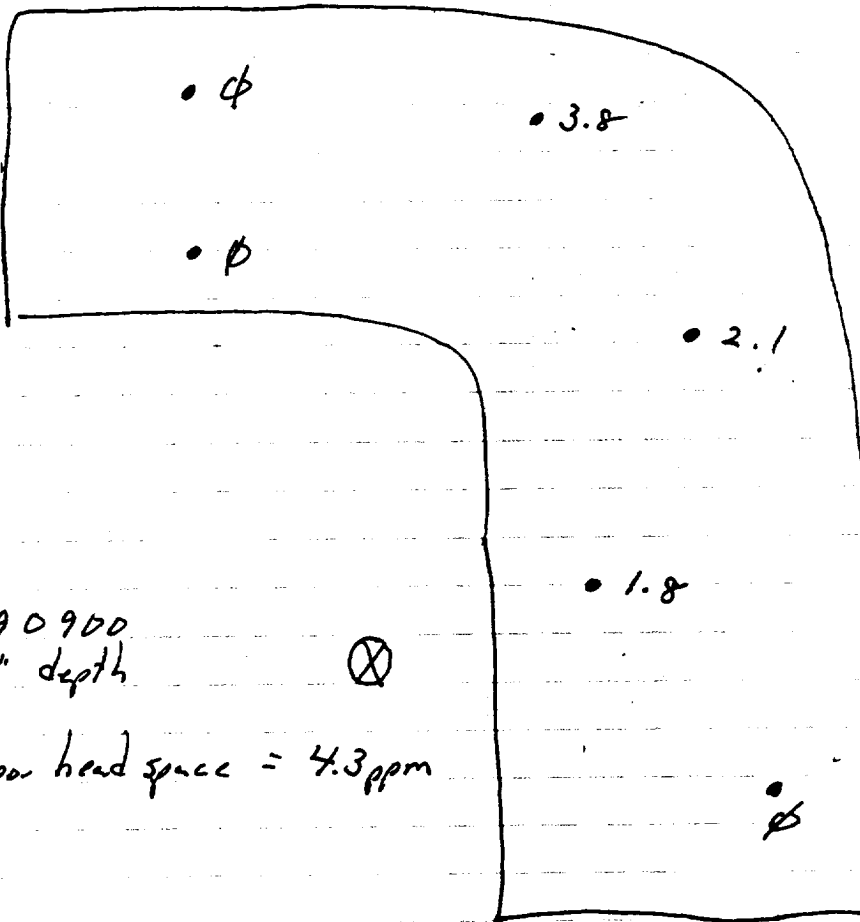 ϕ
3.8
ϕ
2.1
1.8
0900
" depth
head space = 4.3ppm
ϕ